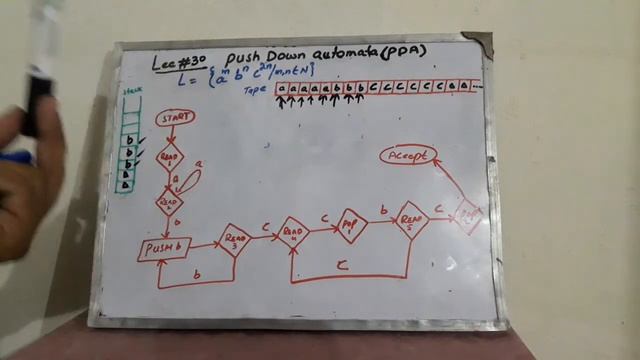 Lec #30 Push Down automata (PDA)
L = {a^m b^n c^2n / m,n ∈ N}
Tape a a a a a b b b b c c c c c c c Δ Δ ...
stack
b
b
b
Δ
Δ
START
READ 1
a
READ 2
a
b
PUSH b
READ 3
b
c
READ 4
c
POP 1
b
READ 5
c
c
POP
Accept